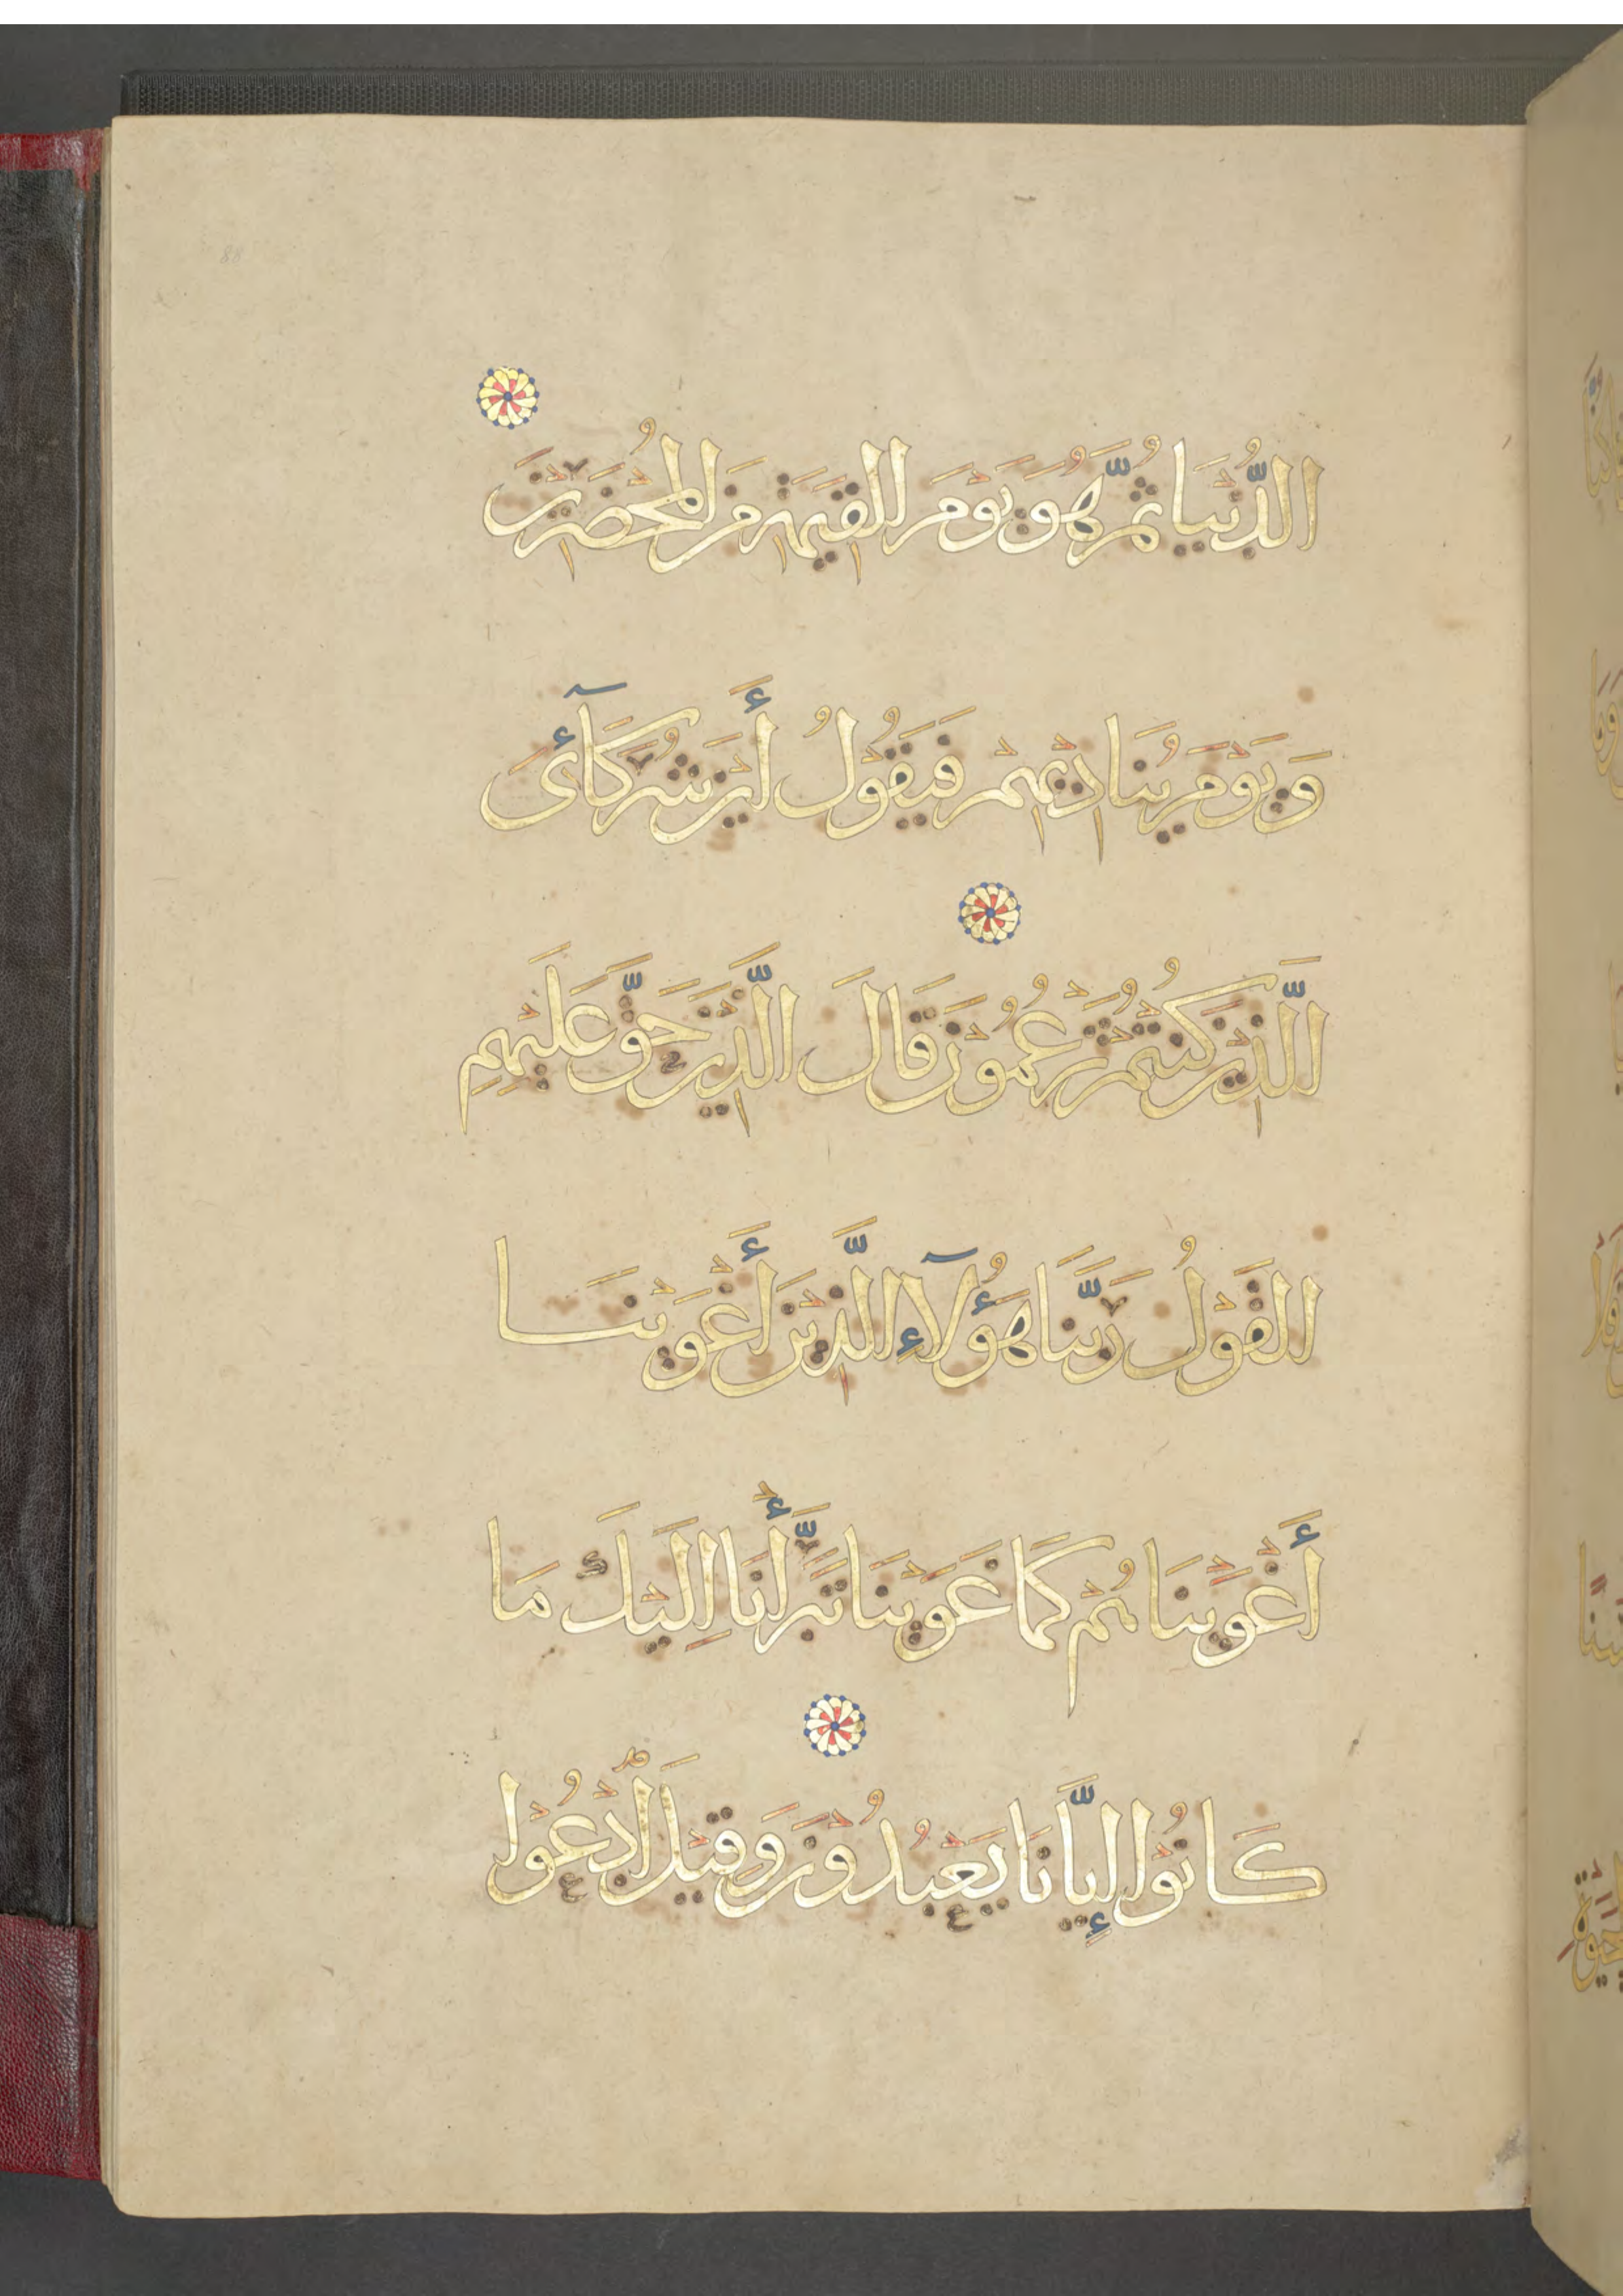 الدُّنْيَا ثُمَّ هُوَ يَوْمَ الْقِيٰمَةِ مِنَ الْمُحْضَرِينَ
وَيَوْمَ يُنَادِيهِمْ فَيَقُولُ أَيْنَ شُرَكَآئِىَ
الَّذِينَ كُنْتُمْ تَزْعُمُونَ قَالَ الَّذِينَ حَقَّ عَلَيْهِمِ
الْقَوْلُ رَبَّنَا هَؤُلَآءِ الَّذِينَ أَغْوَيْنَا
أَغْوَيْنَاهُمْ كَمَا غَوَيْنَا تَبَرَّأْنَا إِلَيْكَ مَا
كَانُوْا إِيَّانَا يَعْبُدُوْنَ وَقِيْلَ ادْعُوْا
88